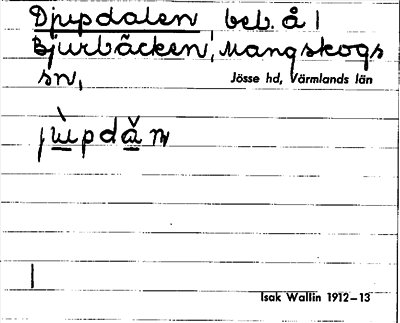 Djupdalen beb. å
Bjurbäcken, Mangskogs
sn,
Jösse hd, Värmlands län
Isak Wallin 1912–13